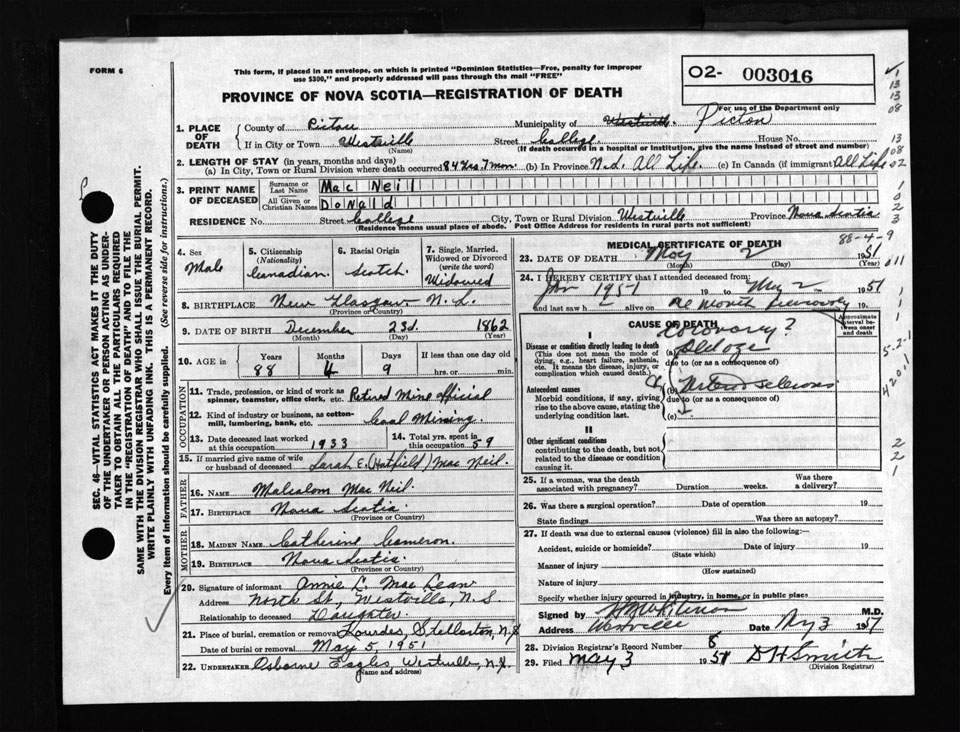 FORM 6
This form, if placed in an envelope, on which is printed "Dominion Statistics—Free, penalty for improper
use $300," and properly addressed will pass through the mail "FREE"
O2- 003016
PROVINCE OF NOVA SCOTIA—REGISTRATION OF DEATH
For use of the Department only
1. PLACE OF DEATH
County of Pictou Municipality of Westville. Pictou
If in City or Town Westville Street College House No.
(Name) (If death occurred in a hospital or institution, give the name instead of street and number)
2. LENGTH OF STAY (in years, months and days)
(a) In City, Town or Rural Division where death occurred 84 yrs 7 mon. (b) In Province N.S. All Life. (c) In Canada (if immigrant) All Life
3. PRINT NAME OF DECEASED
Surname or Last Name Mac Neil
All Given or Christian Names DoNald
RESIDENCE No. Street College City, Town or Rural Division Westville Province Nova Scotia
(Residence means usual place of abode. Post Office Address for residents in rural parts not sufficient)
4. Sex Male
5. Citizenship (Nationality) Canadian
6. Racial Origin Scotch
7. Single, Married, Widowed or Divorced (write the word) Widowed
8. BIRTHPLACE New Glasgow N.S.
(Province or Country)
9. DATE OF BIRTH December 23d. 1862
(Month) (Day) (Year)
10. AGE in Years Months Days If less than one day old
88 4 9 hrs. or min.
OCCUPATION
11. Trade, profession, or kind of work as spinner, teamster, office clerk, etc. Retired Mine Official
12. Kind of industry or business, as cotton-mill, lumbering, bank, etc. Coal Mining.
13. Date deceased last worked at this occupation 1933
14. Total yrs. spent in this occupation 59
15. If married give name of wife or husband of deceased Sarah E. (Hatfield) Mac Neil.
FATHER
16. NAME Malcolom Mac Neil
17. BIRTHPLACE Nova Scotia
(Province or Country)
MOTHER
18. MAIDEN NAME Catherine Cameron.
19. BIRTHPLACE Nova Scotia.
(Province or Country)
20. Signature of informant Annie L. Mac Lean
Address North St, Westville, N.S.
Relationship to deceased Daughter.
21. Place of burial, cremation or removal Lourdes, Stellarton, N.S.
Date of burial or removal May 5, 1951
22. UNDERTAKER Osborne Eagles, Westville, N.S.
(Name and address)
MEDICAL CERTIFICATE OF DEATH
88-4-9
23. DATE OF DEATH May 2 1951
(Month) (Day) (Year)
24. I HEREBY CERTIFY that I attended deceased from
Jan 1951 19 to May 2 1951
and last saw h alive on a month previously 19
CAUSE OF DEATH
Approximate interval between onset and death
I
Disease or condition directly leading to death
(This does not mean the mode of dying, e.g., heart failure, asthenia, etc. It means the disease, injury, or complication which caused death.)
(a) Coronary?
due to (or as a consequence of)
Antecedent causes
Morbid conditions, if any, giving rise to the above cause, stating the underlying condition last.
(b)
due to (or as a consequence of)
(c)
II
Other significant conditions
contributing to the death, but not related to the disease or condition causing it.
25. If a woman, was the death associated with pregnancy? Duration weeks. Was there a delivery?
26. Was there a surgical operation? Date of operation 19
State findings Was there an autopsy?
27. If death was due to external causes (violence) fill in also the following:—
Accident, suicide or homicide? Date of injury 19
(State which)
Manner of injury
(How sustained)
Nature of injury
Specify whether injury occurred in industry, in home, or in public place
Signed by M.D.
Address Westville Date My 3 1951
28. Division Registrar's Record Number 8
29. Filed May 3 1951 D H Smith
(Division Registrar)
SEC. 46—VITAL STATISTICS ACT MAKES IT THE DUTY
OF THE UNDERTAKER OR PERSON ACTING AS UNDER-
TAKER TO OBTAIN ALL THE PARTICULARS REQUIRED
IN THE "REGISTRATION OF DEATH" AND TO FILE THE
SAME WITH THE DIVISION REGISTRAR WHO SHALL ISSUE THE BURIAL PERMIT.
WRITE PLAINLY WITH UNFADING INK. THIS IS A PERMANENT RECORD.
Every item of information should be carefully supplied. (See reverse side for instructions.)